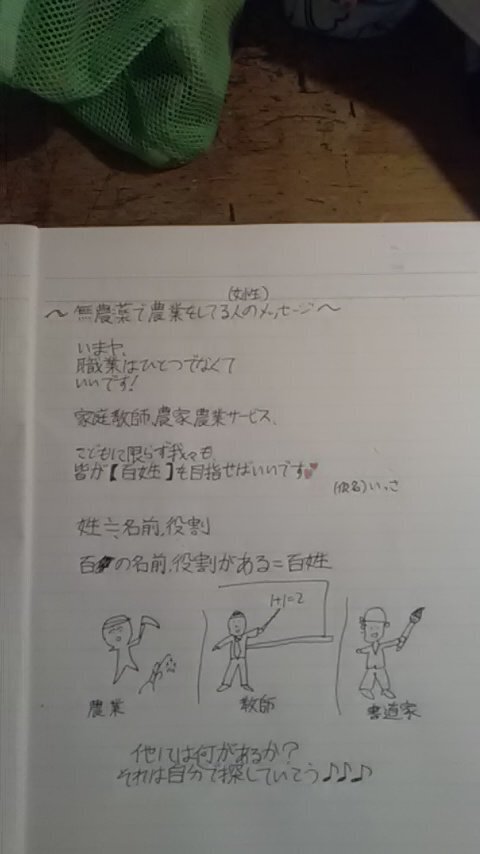 (女性)
〜 無農薬で農業をしてる人のメッセージ 〜
いまや、
職業はひとつでなくて
いいです!
家庭教師、農家、農業サービス、
こどもに限らず我々も、
皆が【百姓】を目指せばいいです💕
(仮名)いっさ
姓≒名前、役割
百の名前、役割がある=百姓
1+1=2
農業
教師
書道家
他には何があるか?
それは自分で探していこう♪♪♪